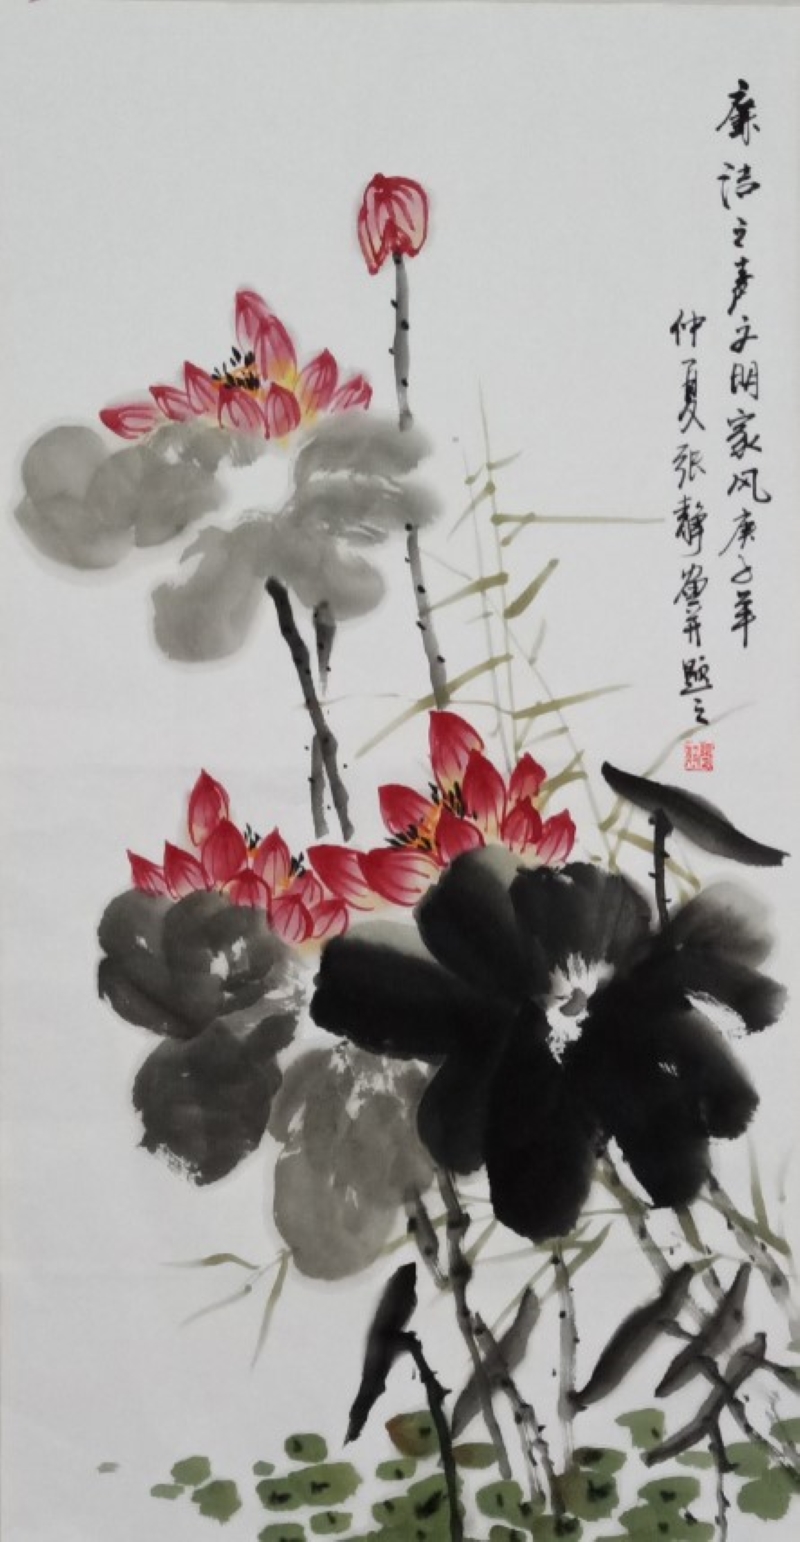 廉洁之声文明家风庚子年
仲夏张静画并题之